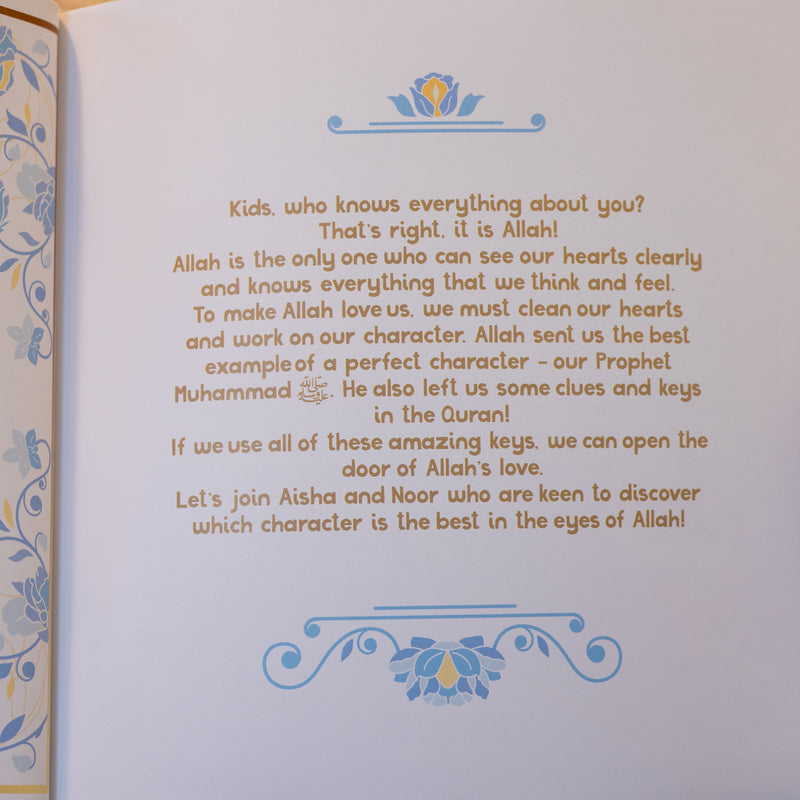 Kids, who knows everything about you?
That's right, it is Allah!
Allah is the only one who can see our hearts clearly
and knows everything that we think and feel.
To make Allah love us, we must clean our hearts
and work on our character. Allah sent us the best
example of a perfect character - our Prophet
Muhammad ﷺ. He also left us some clues and keys
in the Quran!
If we use all of these amazing keys, we can open the
door of Allah's love.
Let's join Aisha and Noor who are keen to discover
which character is the best in the eyes of Allah!